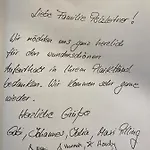 Liebe Familie Polzleitner!
Wir möchten uns ganz herzlich
für den wunderschönen
Aufenthalt in Ihrem
bedanken. Wir kommen sehr gerne
wieder.
Herzliche Grüße
Gabi, Johannes,